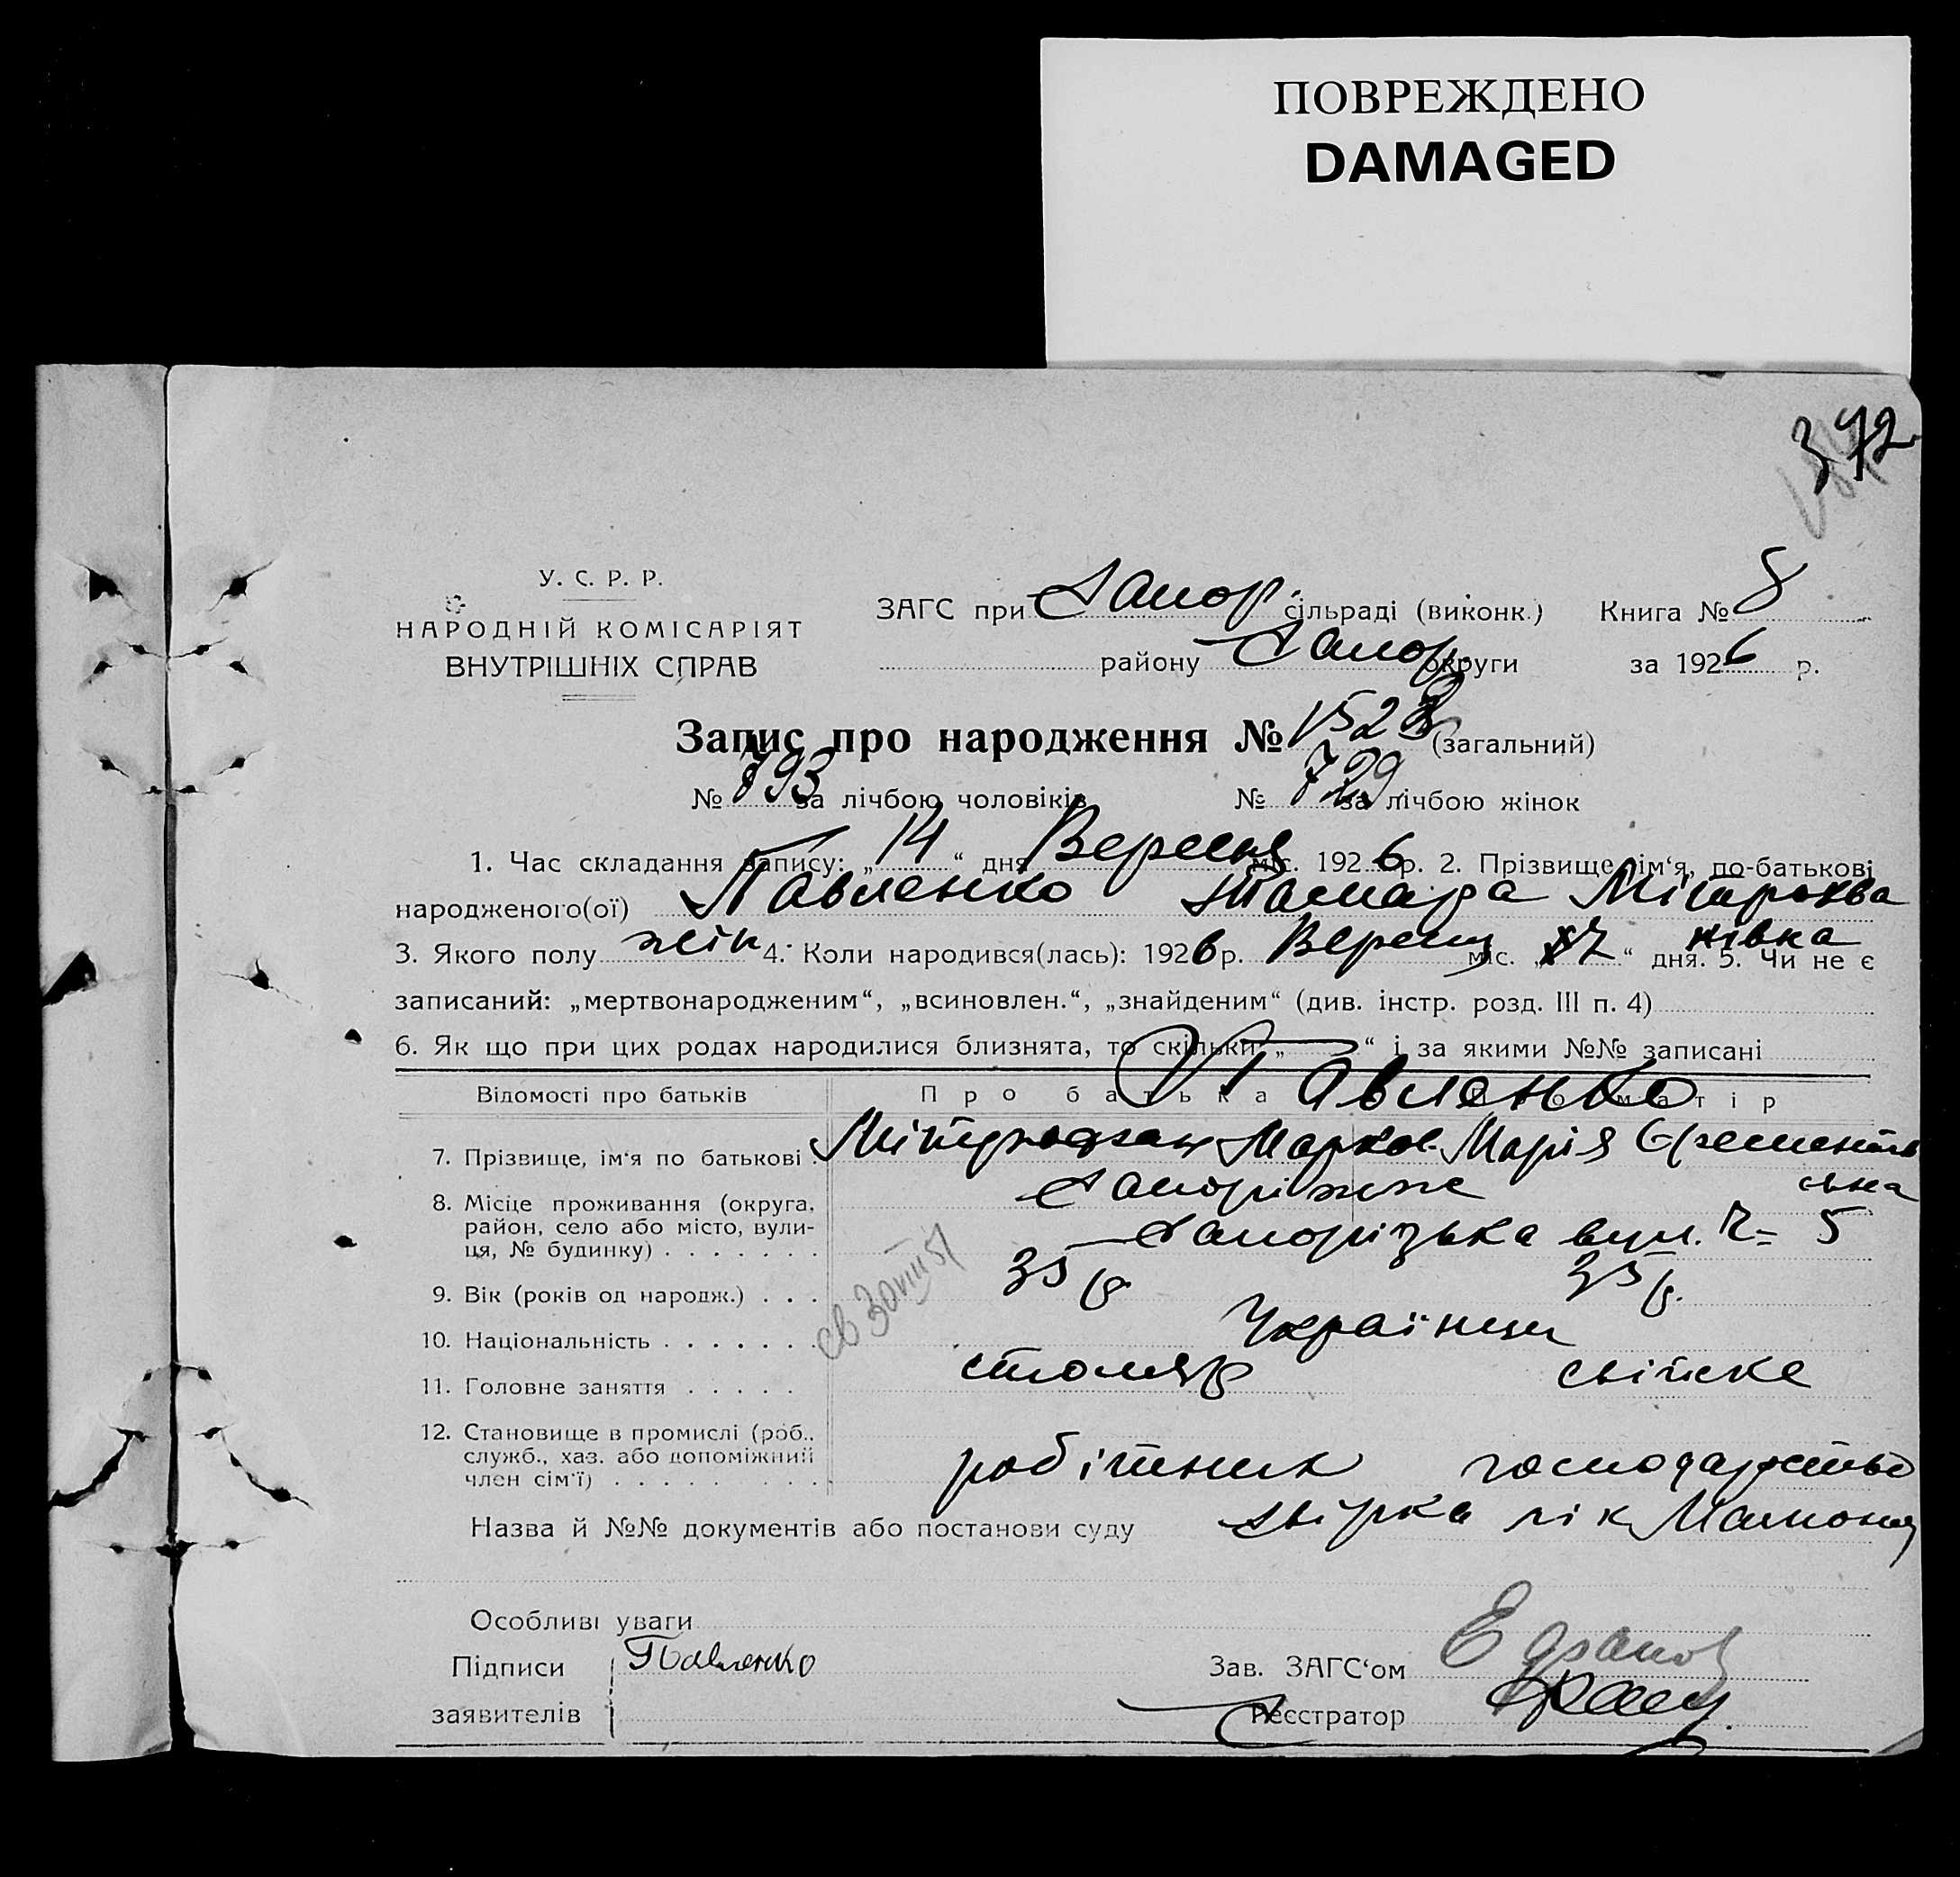 ПОВРЕЖДЕНО
DAMAGED
372
У. С. Р. Р.
НАРОДНІЙ КОМІСАРІЯТ
ВНУТРІШНІХ СПРАВ
ЗАГС при Запор. сільраді (виконк.) Книга № 8
району Запор. округи за 1926 р.
Запис про народження № 1522 (загальний)
№ 793 за лічбою чоловіків № 729 за лічбою жінок
1. Час складання запису: „14“ дня Вересня міс. 1926 р. 2. Прізвище, ім‘я, по-батькові
народженого(ої) Павленко Тамара Мітрохва
нівка
3. Якого полу жін. 4. Коли народився(лась): 1926 р. Вересня міс. „7“ дня. 5. Чи не є
записаний: „мертвонародженим“, „всиновлен.“, „знайденим“ (див. інстр. розд. III п. 4)
6. Як що при цих родах народилися близнята, то скільки „ “ і за якими №№ записані
Відомості про батьків Про батька Про матір
Павленко
7. Прізвище, ім‘я по батькові Марков. Марія
8. Місце проживання (округа, район, село або місто, вули-
ця, № будинку) Запоріжже
Запорізька вул. № 5
9. Вік (років од народж.) 35 р. 35 р.
10. Національність Українці
11. Головне заняття столяр свійське
12. Становище в промислі (роб.,
служб., хаз. або допоміжний
член сім‘ї) робітник господарство
Назва й №№ документів або постанови суду
Особливі уваги
Підписи Павленко Зав. ЗАГС‘ом
заявителів Реєстратор